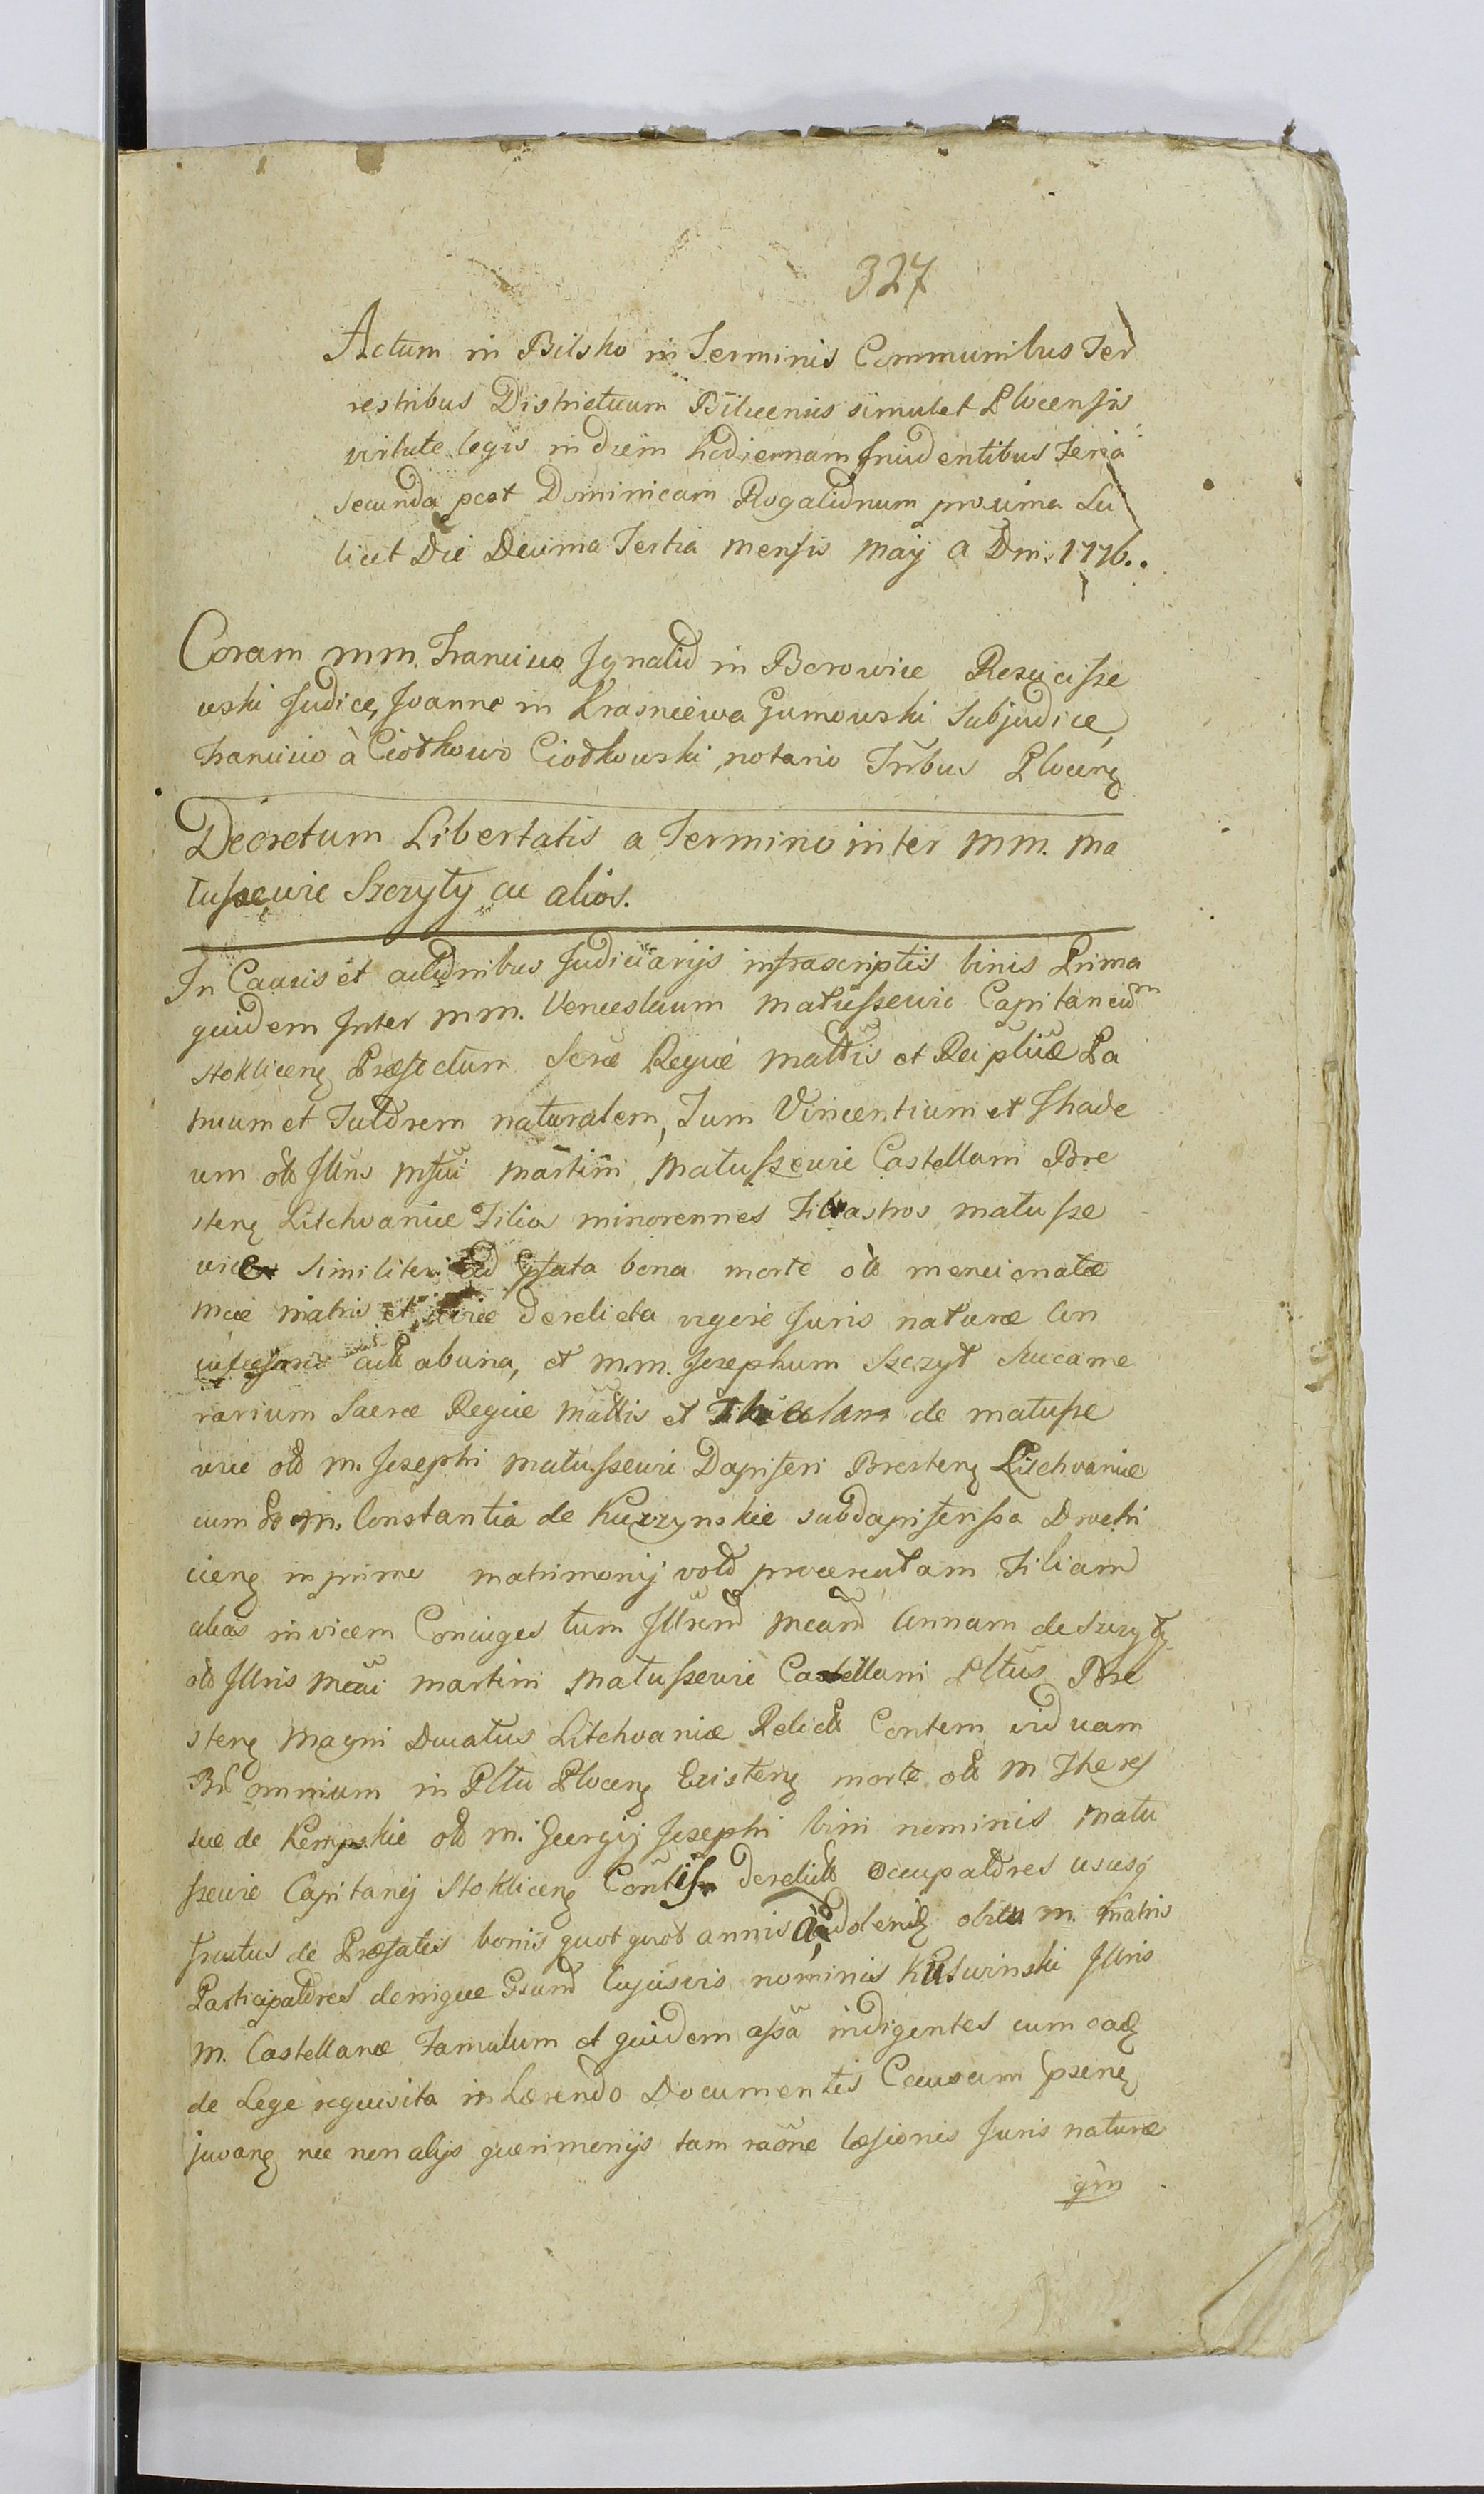 327
Actum in Bilsko in Terminis Communibus Ter
restribus Districtuum Bilscensis simul et Plocensis
virtute legis in diem hodiernam inciden­tibus Feria
secunda post Dominicam Rogationum proxima Sci
licet Die Decima Tertia mensis maij A Dni 1776..
Coram mm. Francisco Ignatio in Borowice Resciisze
wski Judice, Joanne in Krasniewo Gumowski Subjudice,
Francisco à Ciotkowo Ciotkowski, notario Trribus Plocen
Decretum Libertatis a Termino inter mm. ma
tuszewic Szczyty ac alios.
In Causis et actionibus Judiciarijs infrascriptis binis Prima
quidem Inter mm. Venceslaum matuszewic Capitaneum
stokliscen Præfectum Scræ Regiæ mattis et Reiplicæ Pa
truum et Tutorem naturalem, Tum Vincentium et Thade
um ol Illris msci martini matuszewic Castellani Bre
sten Litchvaniæ Filios minorennes Filiastros matusze
vic similiter ad bona morte ol mencionatæ
mcæ matris et derelicta vigore Juris naturæ Con
et mm. Josephum Szczyt Succame
rarium Sacræ Regiæ mattis et de matusze
wic ol m. Josephi matuszewic Dapiferi Bresten Litchvaniæ
cum m. Constantia de Kuczynskie subdapiferissa Drochi
cien in primo matrimonij voto procreatam Filiam
alias invicem Coniuges tum Illrem mcam Annam de Szczyty
ol Illris mci martini matuszewic Castellani Pltûs Bre
sten magni Ducatus Litchvaniæ Relict Contem viduam
Br omnium in Pltu Plocen Existen morte ol m There
siæ de Kempskie ol m. Georgij Josephi bini nominis matu
szewic Capitanej stokliscen Contis derelict occupatores usus
fructus de Præfatis bonis quot quot annis obitu m. matris
Participatores denique Gsund Cujusvis nominis Kutwinski Illris
m. Castellanæ Famulum et quidem assã indigentes cum ead
de Lege requisita inhærendo Documentis Causam psen
juvan nec non alijs querimonijs tam raõne læsionis Juris naturæ
qm